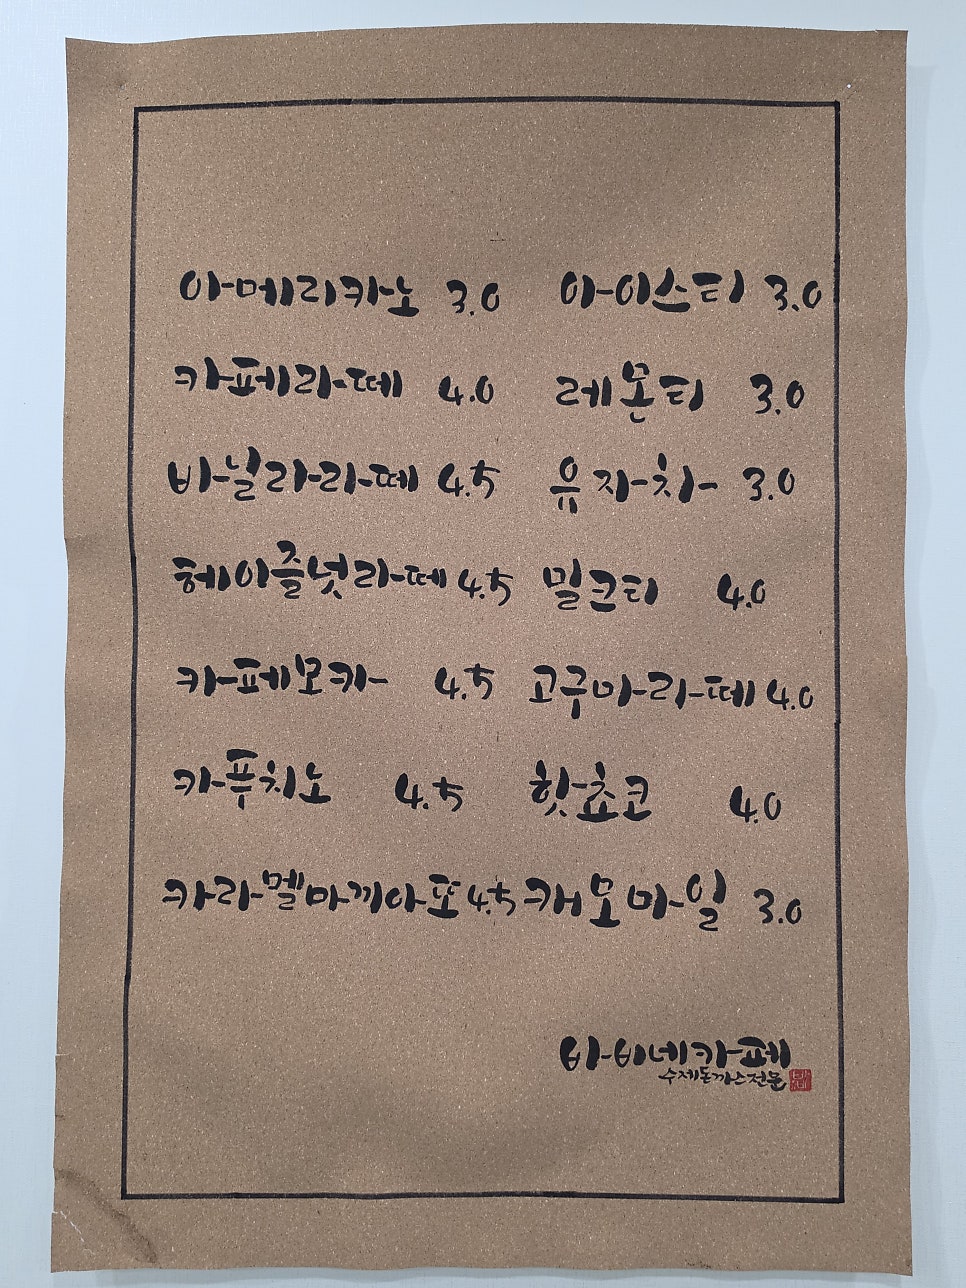 아메리카노 3.0 아이스티 3.0
카페라떼 4.0 레몬티 3.0
바닐라라떼 4.5 유자차 3.0
헤이즐넛라떼 4.5 밀크티 4.0
카페모카 4.5 고구마라떼 4.0
카푸치노 4.5 핫쵸코 4.0
카라멜마끼아또 4.5 캐모마일 3.0
바비네카페
수제돈까스전문